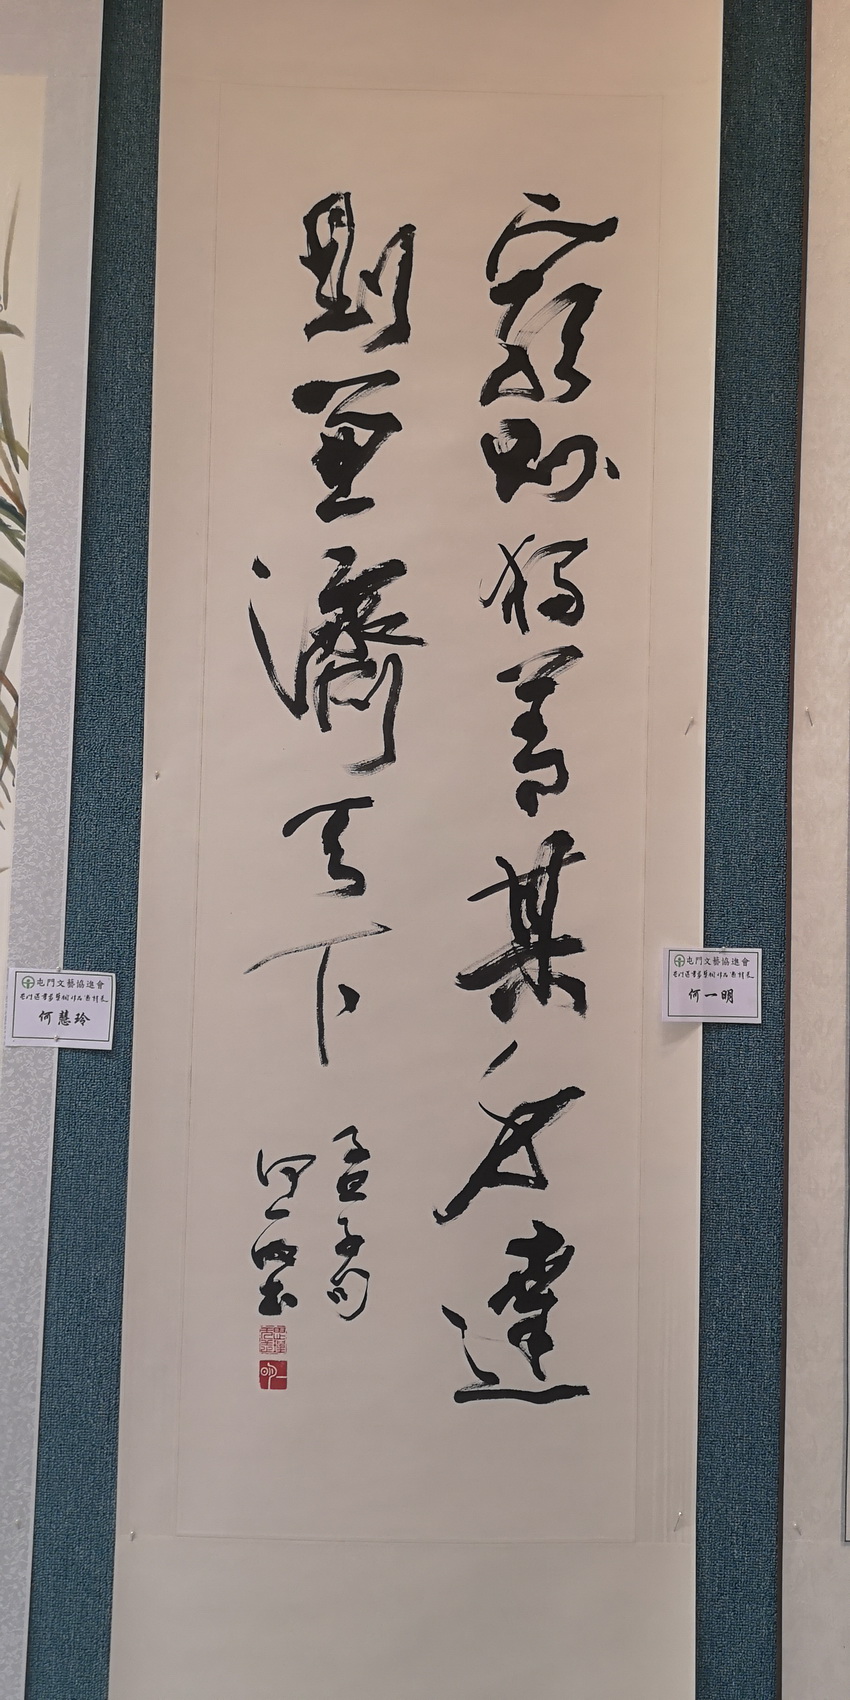 窮則獨善其身達
則兼濟天下
孟子句
何一明書
屯門文藝協進會
何一明
屯門文藝協進會
何慧玲